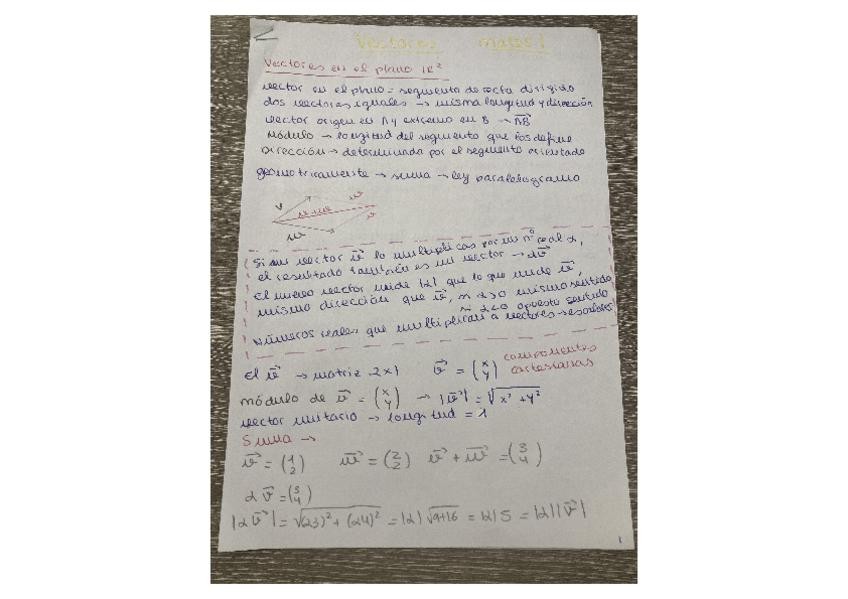 Vectores mates I
Vectores en el plano ℝ²
vector en el plano = segmento de recta dirigido
dos vectores iguales → misma longitud y dirección
vector origen en A y extremo en B → AB⃗
módulo → longitud del segmento que los define
Dirección → determinada por el segmento orientado
geométricamente → suma → ley paralelogramo
v w⃗
v
w
Si un vector v⃗ lo multiplicas por un nº real α,
el resultado también es un vector → αv⃗
El nuevo vector mide |α| que lo que mide v⃗,
misma dirección que v⃗, si α>0 mismo sentido
si α<0 opuesto sentido
Números reales que multiplican a vectores → escalares
El v⃗ → matriz 2x1 v⃗ = (x y) componentes
cartesianas
módulo de v⃗ = (x y) → |v⃗| = √x² + y²
vector unitario → longitud = 1
Suma →
v⃗ = (1 2) w⃗ = (2 2) v⃗ + w⃗ = (3 4)
αv⃗ = (3 4)
|αv⃗| = √(α3)² + (α4)² = |α| √9+16 = |α| 5 = |α| |v⃗|
1